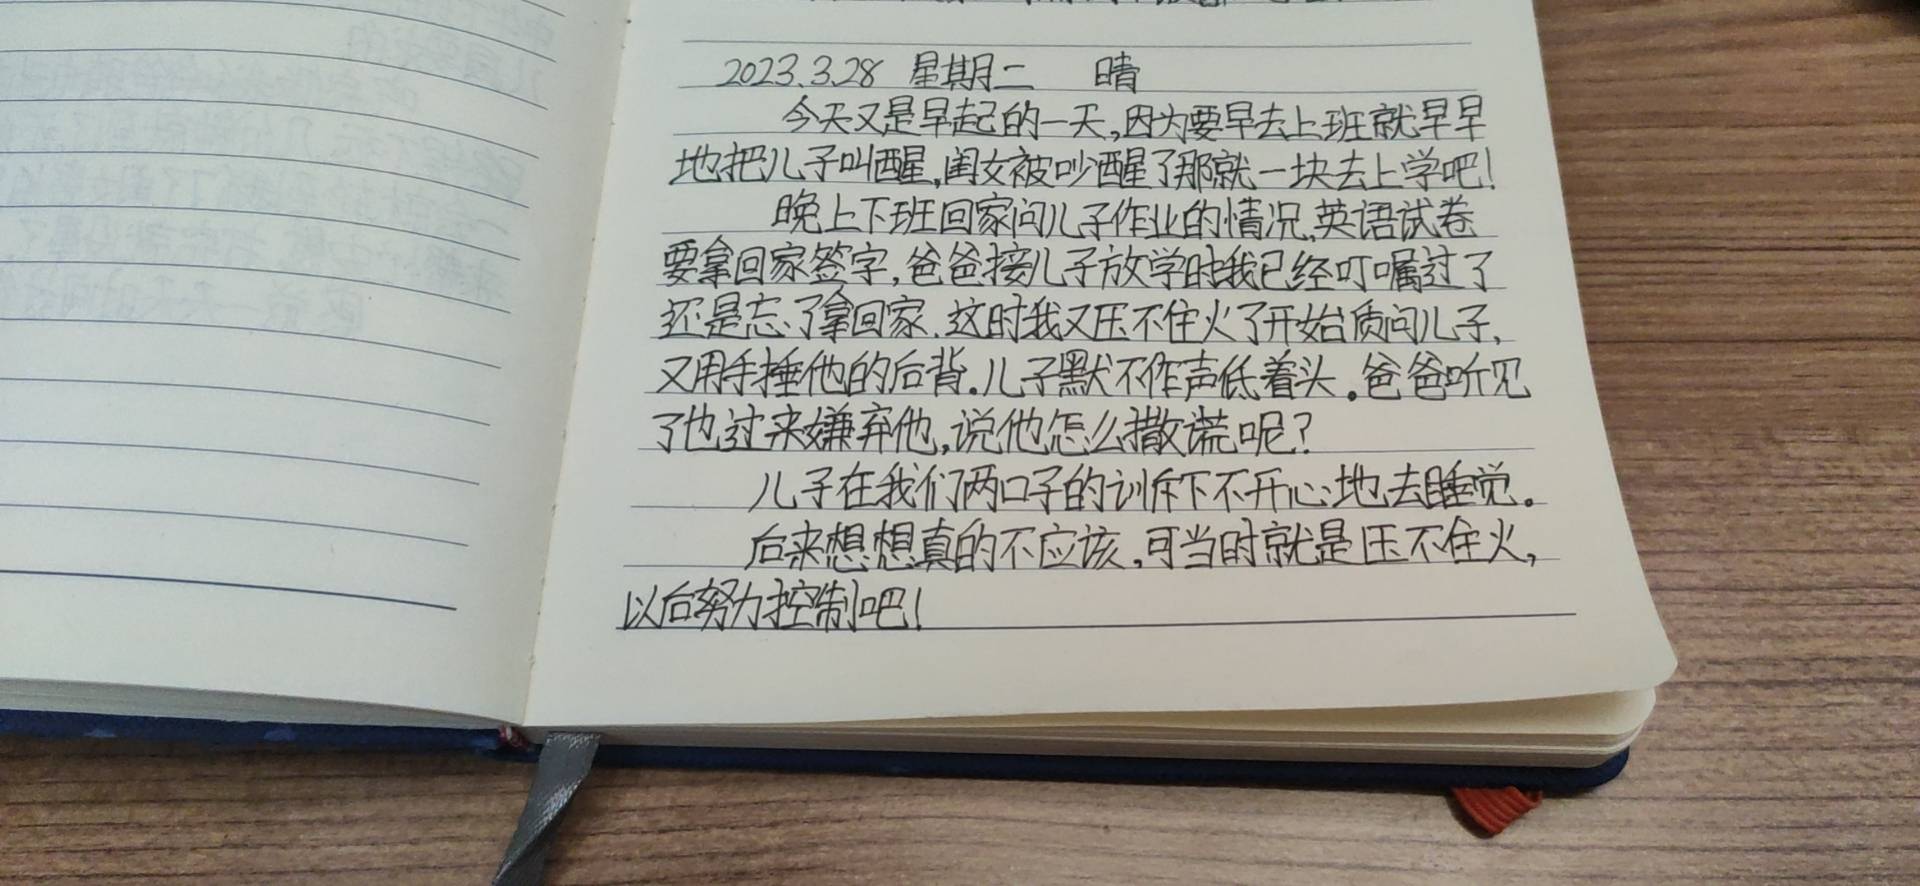 2023.3.28 星期二 晴
今天又是早起的一天,因为要早去上班就早早
地把儿子叫醒,闺女被吵醒了那就一块去上学吧!
晚上下班回家问儿子作业的情况,英语试卷
要拿回家签字,爸爸接儿子放学时我已经叮嘱过了
还是忘了拿回家.这时我又压不住火了开始质问儿子,
又用手捶他的后背.儿子默不作声低着头。爸爸听见
了也过来嫌弃他,说他怎么撒谎呢?
儿子在我们两口子的训斥下不开心地去睡觉。
后来想想真的不应该,可当时就是压不住火,
以后努力控制吧!